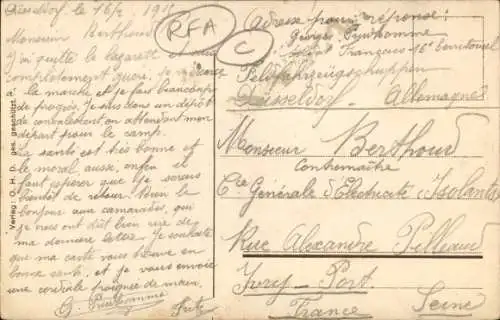 Düsseldorf, le 16/2 191
Monsieur Berthoud
J'ai quitté le lazarett et suis
complètement guéri. Je recommence
la marche et je fais beaucoup
de progrès. Je suis dans un dépôt
de convalescent en attendant mon
départ pour le camp.
La santé est très bonne et
le moral aussi, enfin il
faut espérer que je serais
bientôt de retour. Bien le
bonjour aux camarades, qui
je veux ont dû bien rire de
ma dernière lettre. Je souhaite
que ma carte vous trouve en
bonne santé et je vous envoie
une cordiale poignée de main.
G. Prudhomme
Fritz
Verlag: C. H. D. ges. geschützt.
RFA
C
Adresse pour réponse:
Georges Prudhomme
Français 18e territorial
Feldfahrzeugschuppen
Düsseldorf. Allemagne
Monsieur Berthoud
Contremaître
Cie Générale d'Electricité
Rue Alexandre Pilleaud
Ivry-Port.
France Seine